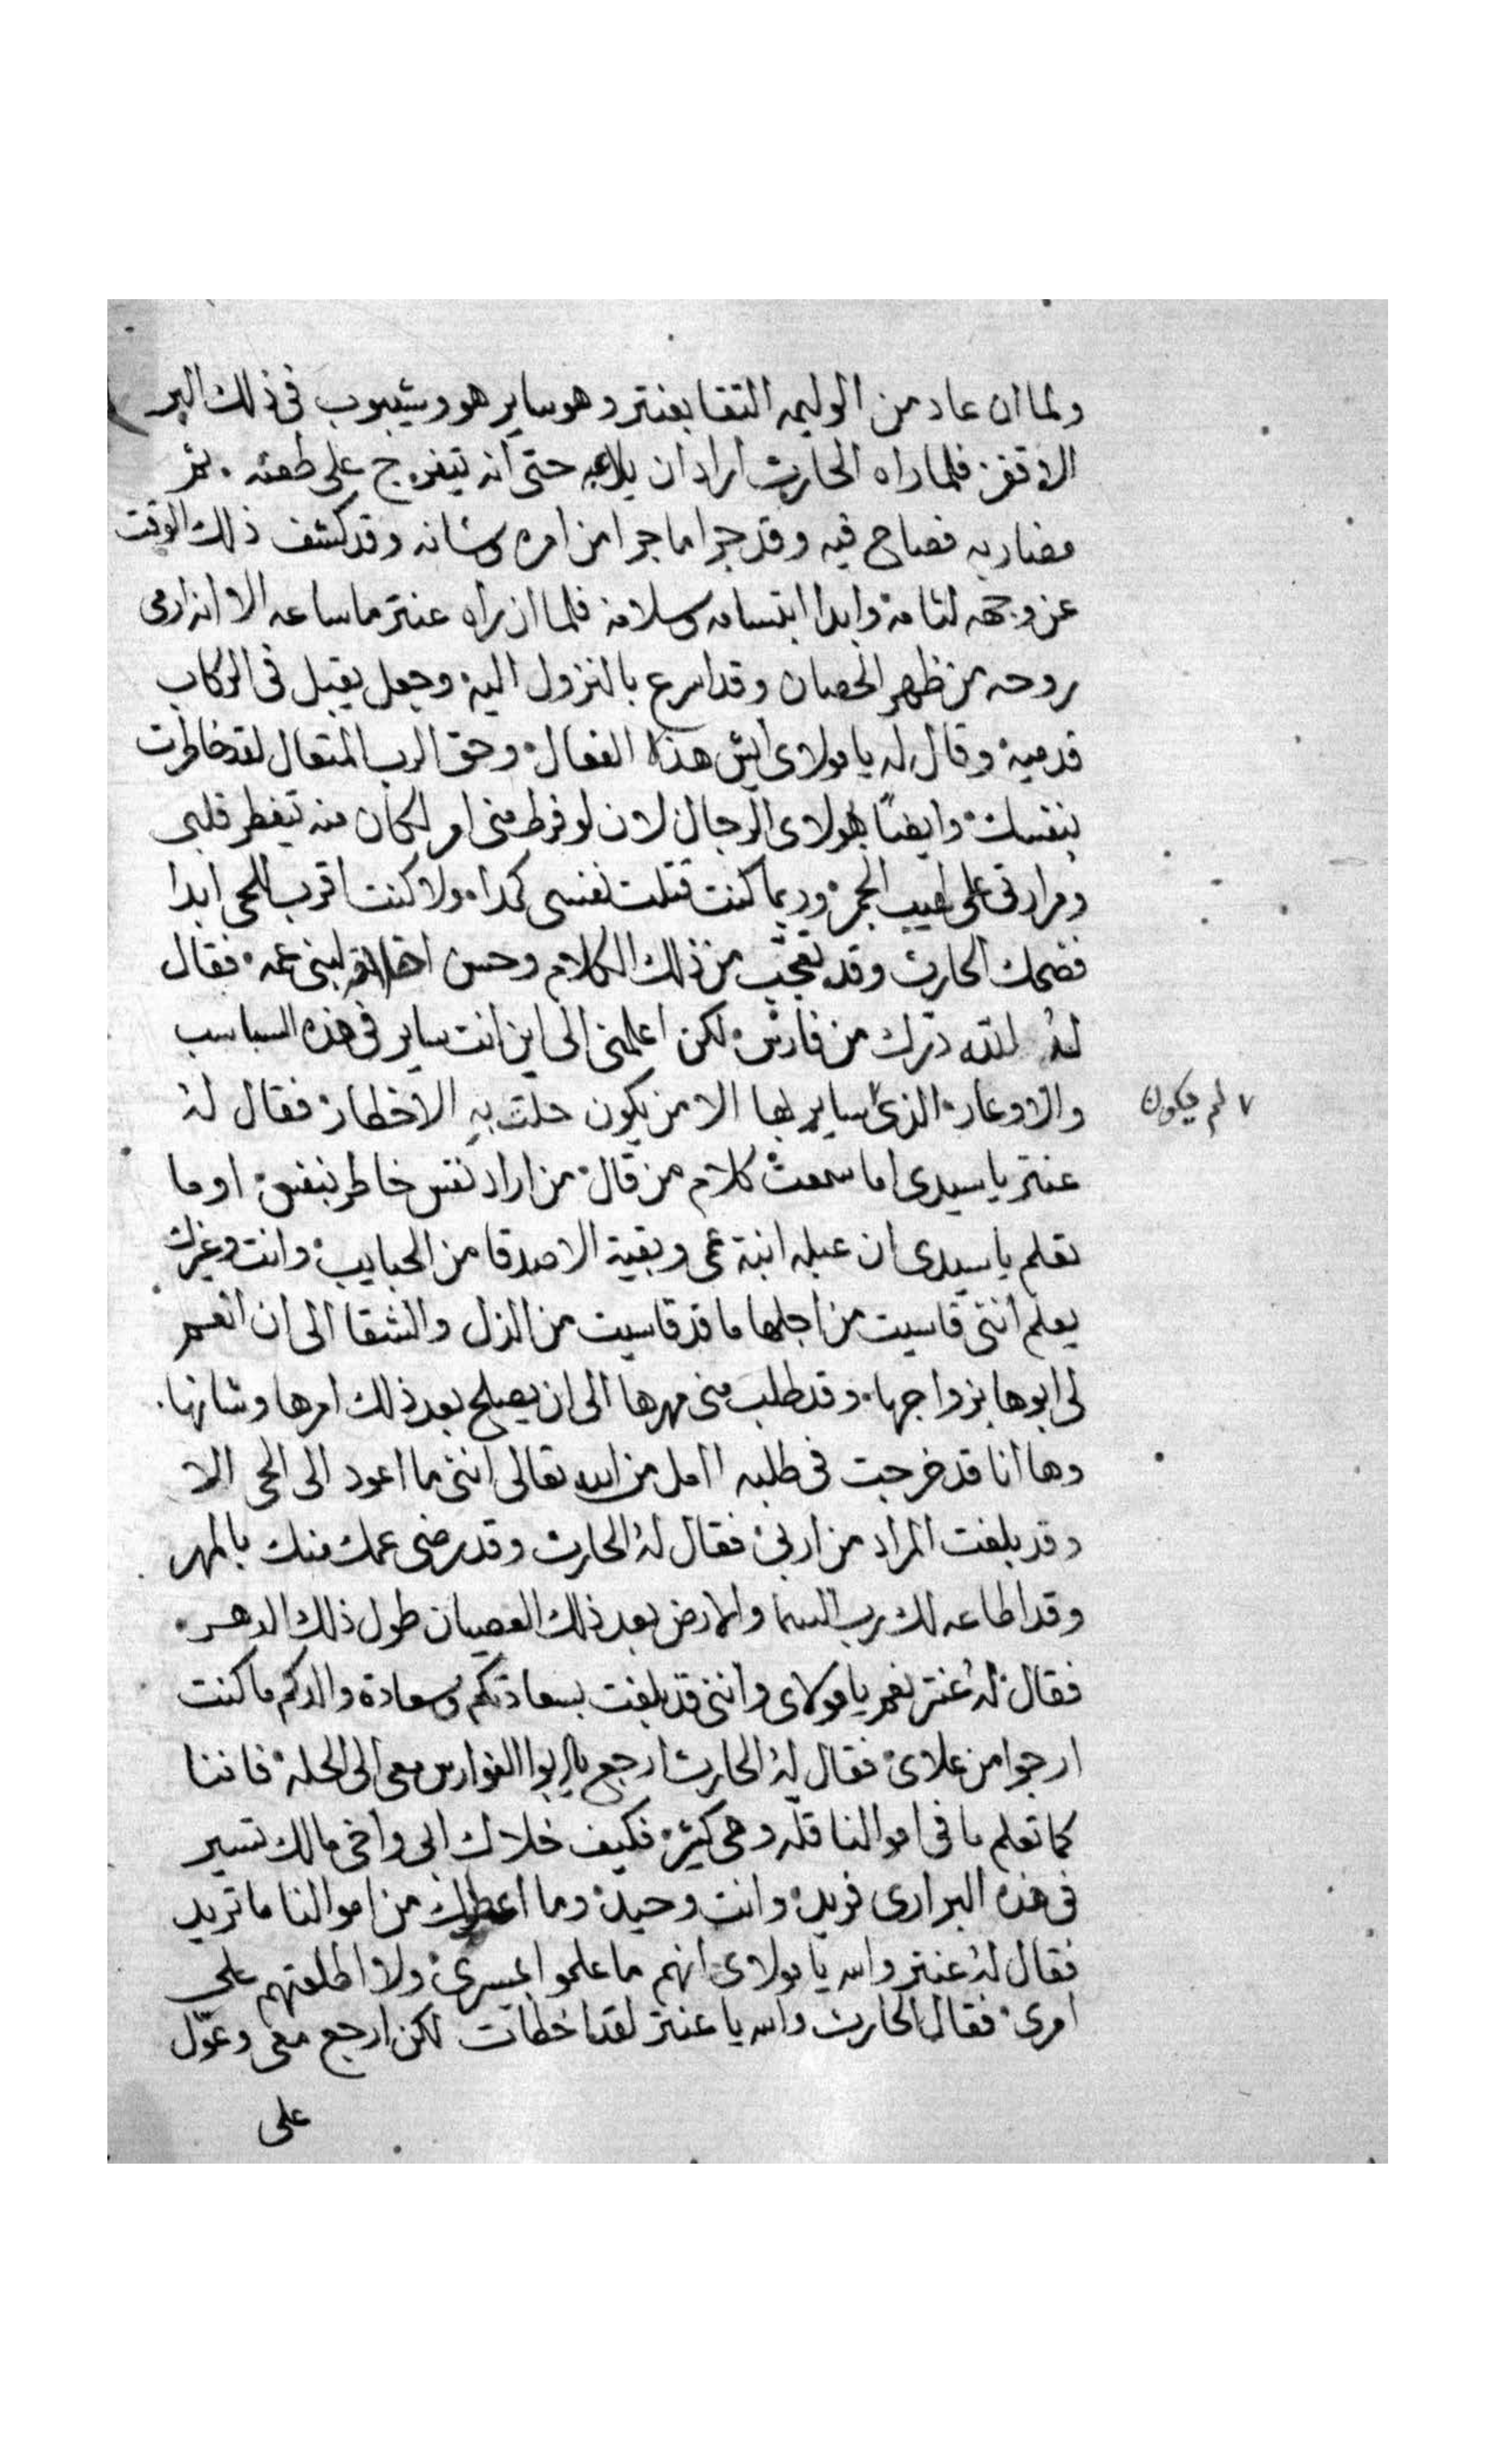 ولما ان عاد من الوليمه التقا بعنتر وهو ساير هو وشيبوب فى ذلك البر
الاقفر فلما راه الحارث اراد ان يلاعبه حتى انه يتفرج على طعنه . ثم
مضاربه فصاح فيه وقد جرا ما جرا من امره وشانه وقد كشف ذلك الوقت
عن وجهه لثامه وابدا ابتسامه وسلامه فلما ان راه عنتر ما ساعه الا انه ارمى
روحه من ظهر الحصان وقد اسرع بالنزول اليه وجعل يقبل فى الركاب
قدميه وقال له يا مولاى ايش هذا الفعال وحق الرب المتعال لقد خاطرت
بنفسك وايضًا هولاى الرجال لان لو فرط منى امر لكان منه تيفطر قلبى
ومرارتى على لهيب الجمر وربما كنت قتلت نفسى كمدا ولا كنت اقرب للحى ابدا
فضحك الحارث وقد تعجّب من ذلك الكلام وحسن اخلاقه لبنى عمه فقال
لهُ للّه درّك من فارس لكن اعلمنى الى اين انت ساير فى هذه السباسب
والاوعار الذى ساير بها الا من يكون حلّت بهِ الاخطار فقال لهُ
٧ لم يكون
عنتر يا سيدى اما سمعت كلام من قال من اراد نفس خاطر بنفس اوما
تعلم يا سيدى ان عبله ابنة عمى وبقية الاصدقا من الحبايب وانت وغيرك
يعلم اننى قاسيت من اجلها ما قد قاسيت من الذل والشقا الى ان انعم
لى ابوها بزواجها وقد طلب منى مهرها الى ان يصلح بعد ذلك امرها وشانها .
وها انا قد خرجت فى طلبه اامل من الله تعالى اننى ما اعود الى الحى الا
وقد بلغت المراد من اربى فقال لهُ الحارث وقد رضى عمك منك بالمهر
وقد اطاعه لك رب السما والارض بعد ذلك العصيان طول ذلك الدهر
فقال لهُ عنتر نعم يا مولاى واننى قد بلغت بسعادتكم وسعادة والدكم ما كنت
ارجوا من علاى فقال لهُ الحارث ارجع يا ابوا الفوارس معى الى الحله فاننا
كما تعلم ما فى اموالنا قلّه وهى كثيرة فكيف خلاك ابى واخى مالك تسير
فى هذه البرارى فريد وانت وحيد وما اعطوك من اموالنا ما تريد
فقال لهُ عنتر والله يا مولاى انهم ما علموا بمسرى ولا اطلعتهم على
امرى فقال الحارث والله يا عنتر لقد اخطات لكن ارجع معى وعوّل
على